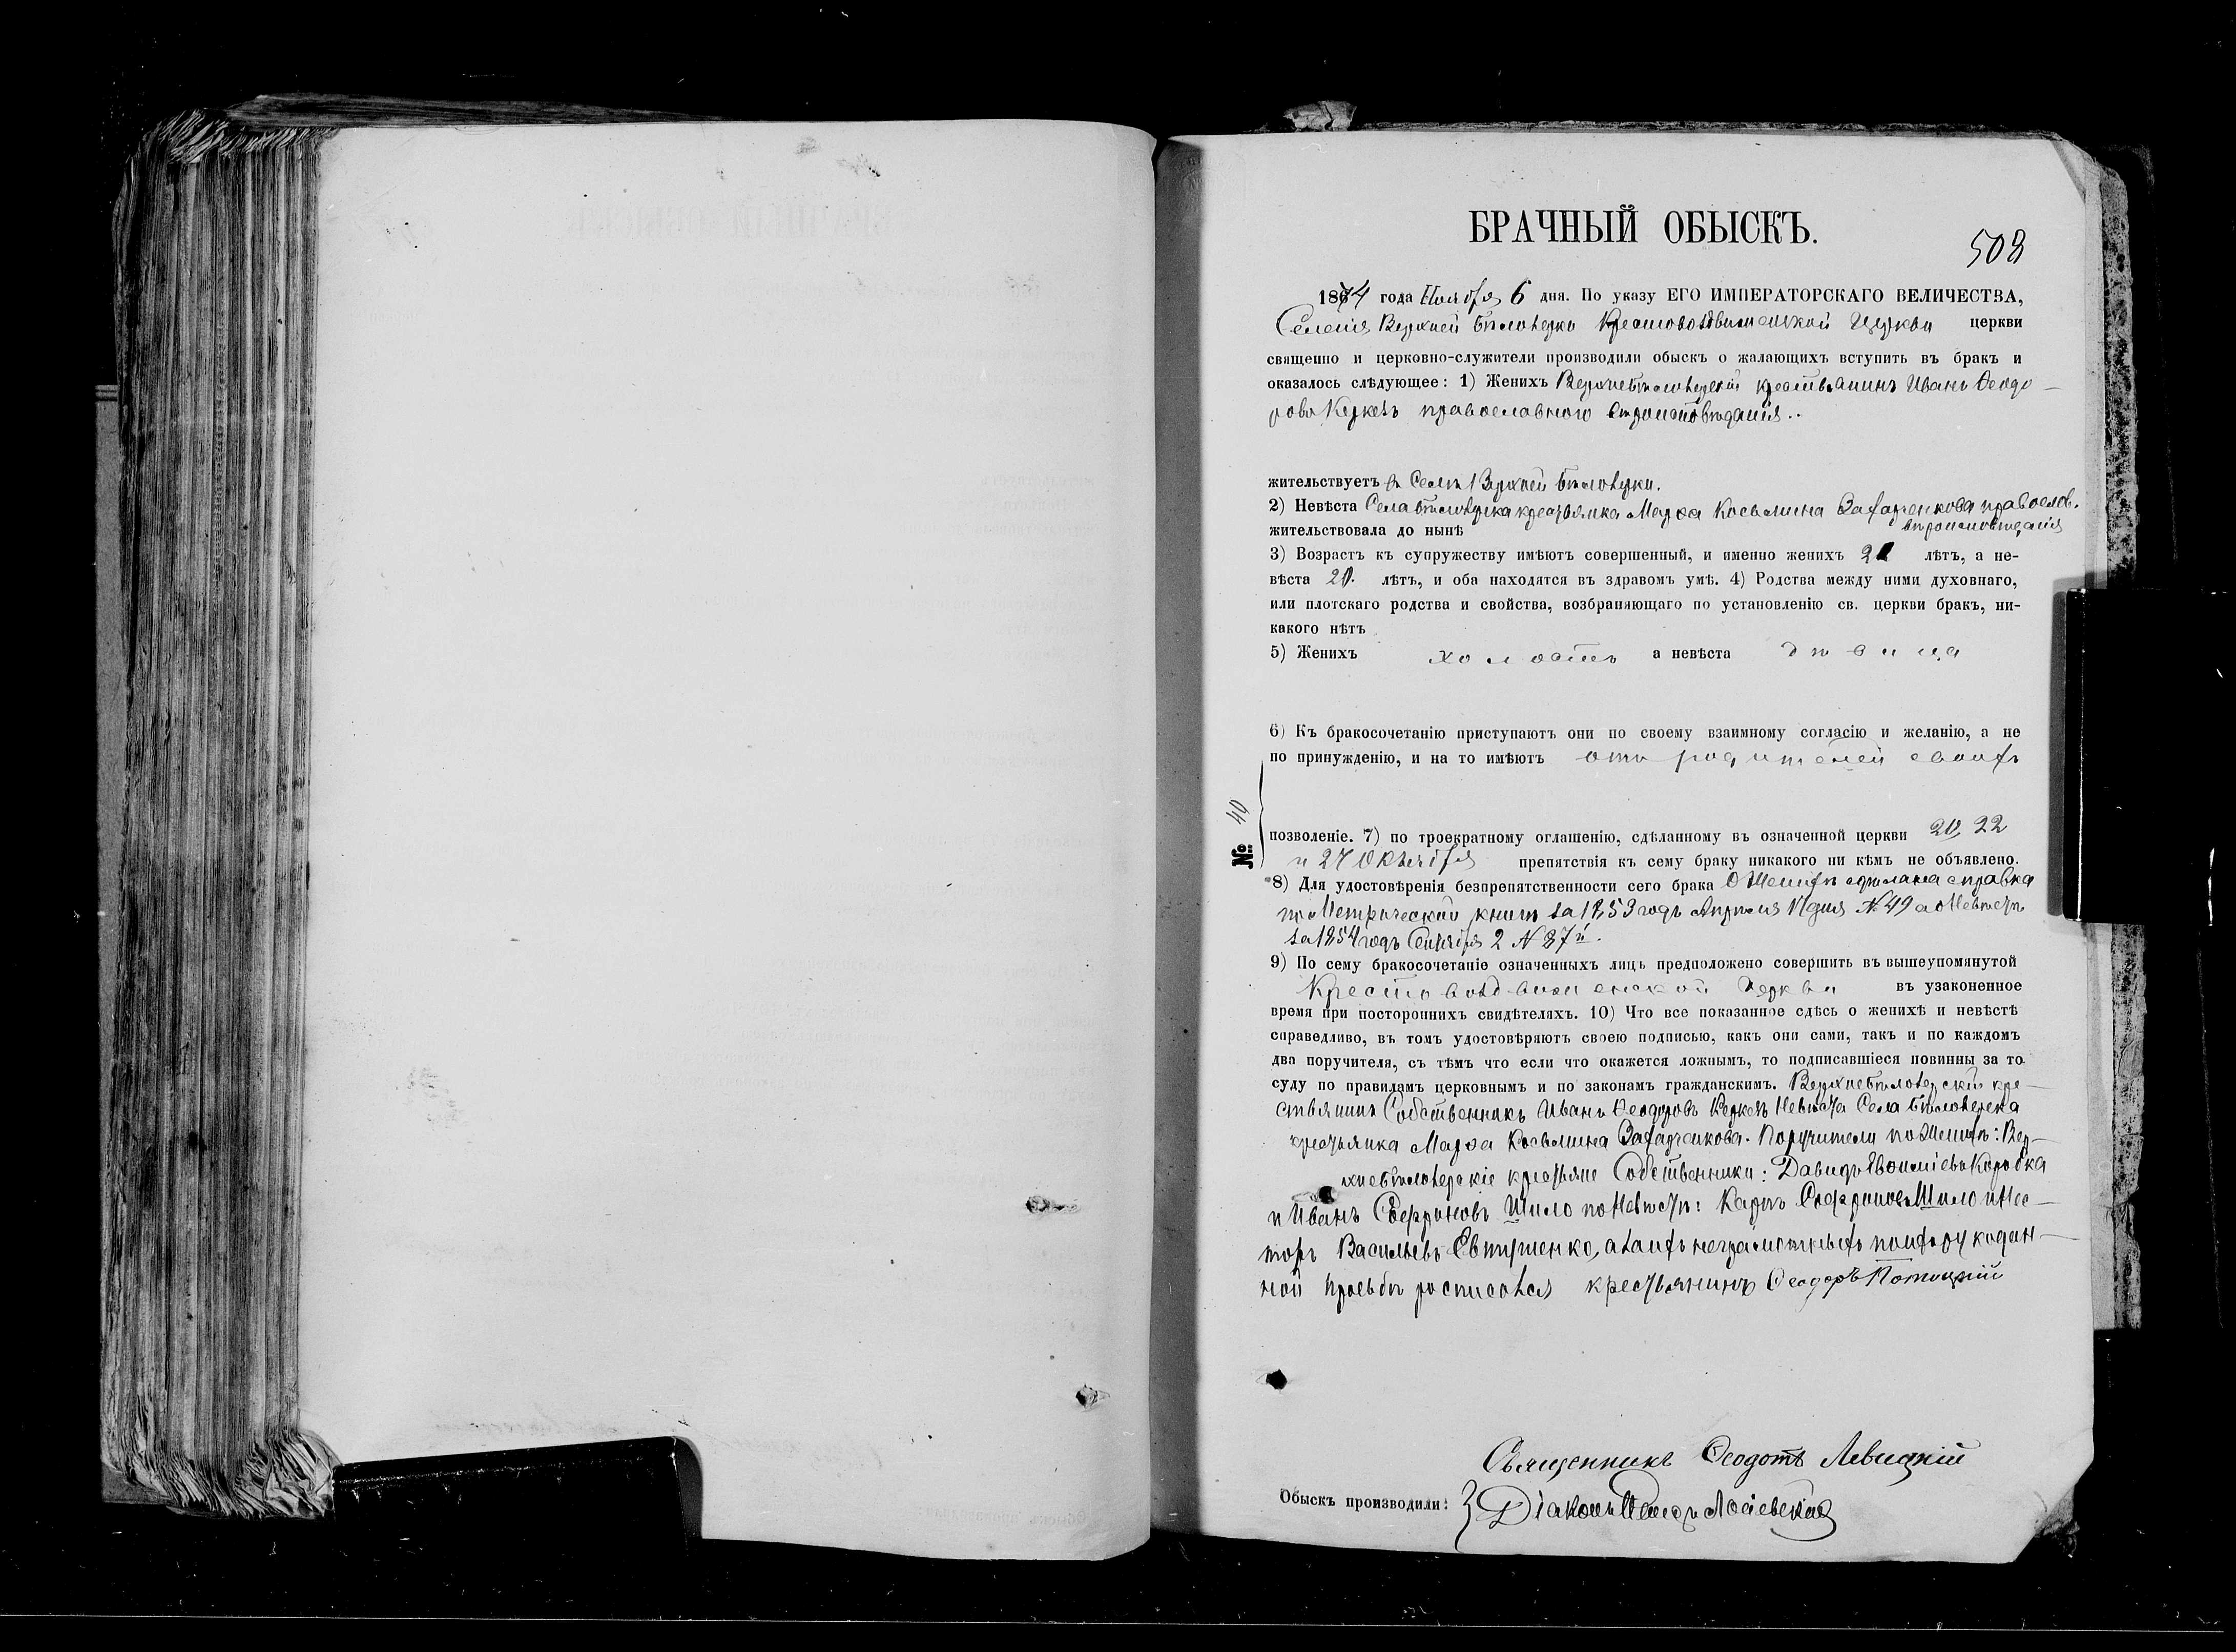 БРАЧНЫЙ ОБЫСКЪ.
508
1874 года Ноября 6 дня. По указу ЕГО ИМПЕРАТОРСКАГО ВЕЛИЧЕСТВА,
Селенія Верхней Бѣлозерки Крестовоздвиженской Церкви церкви
священно и церковно-служители производили обыскъ о жалающихъ вступить въ бракъ и
оказалось слѣдующее: 1) Женихъ Верхнебѣлозерскій крестьянинъ Иванъ Ѳеодо-
ровъ Кержъ православного вѣроисповѣданія..
жительствуетъ въ Селѣ Верхней Бѣлозерки.
2) Невѣста Села Бѣлозерка крестьянка Марѳа Косьмина православ.
жительствовала до нынѣ вѣроисповѣданія
3) Возрастъ къ супружеству имѣютъ совершенный, и именно женихъ 21 лѣтъ, а не-
вѣста 20. лѣтъ, и оба находятся въ здравомъ умѣ. 4) Родства между ними духовнаго,
или плотскаго родства и свойства, возбраняющаго по установленію св. церкви бракъ, ни-
какого нѣтъ
5) Женихъ холостъ а невѣста дѣвица
6) Къ бракосочетанію приступаютъ они по своему взаимному согласію и желанію, а не
по принужденію, и на то имѣютъ отъ родителей своихъ
№ 40
позволеніе. 7) по троекратному оглашенію, сдѣланному въ означенной церкви 20, 22
и 27 Октября препятствія къ сему браку никакого ни кѣмъ не объявлено.
8) Для удостовѣренія безпрепятственности сего брака О Женихѣ сдѣлана справка
по Метрической книгѣ за 1853 годъ Апрѣля дня № 49 а о Невѣстѣ
за 1854 годъ Сентября 2 N 87й.
9) По сему бракосочетаніе означенныхъ лицъ предположено совершить въ вышеупомянутой
Крестовоздвиженской Церкви въ узаконенное
время при постороннихъ свидѣтеляхъ. 10) Что все показанное сдѣсь о женихѣ и невѣстѣ
справедливо, въ томъ удостовѣряютъ своею подписью, какъ они сами, такъ и по каждомъ
два поручителя, съ тѣмъ что если что окажется ложнымъ, то подписавшіеся повинны за то
суду по правиламъ церковнымъ и по законамъ гражданскимъ. Верхнебѣлозерскій кре-
стьянинъ Собственникъ Иванъ Ѳеодоровъ Невѣста Села Бѣлозерска
крестьянка Марѳа Косьмина Поручители по Женихѣ: Вер-
хнебѣлозерскіе крестьяне Собственники: Давидъ Евѳиміевъ Коробка
и Иванъ Софроновъ Шило по Невѣстѣ: Карпъ Софроновъ Шило и Нес-
торъ Васильевъ Евтушенко, а за ихъ неграмотныхъ по ихъ рукодан-
ной просьбѣ росписался крестьянинъ Ѳеодоръ Потоцкій
Священникъ Ѳеодотъ Левицкій
Обыскъ производили: Діаконъ Лосіевскій